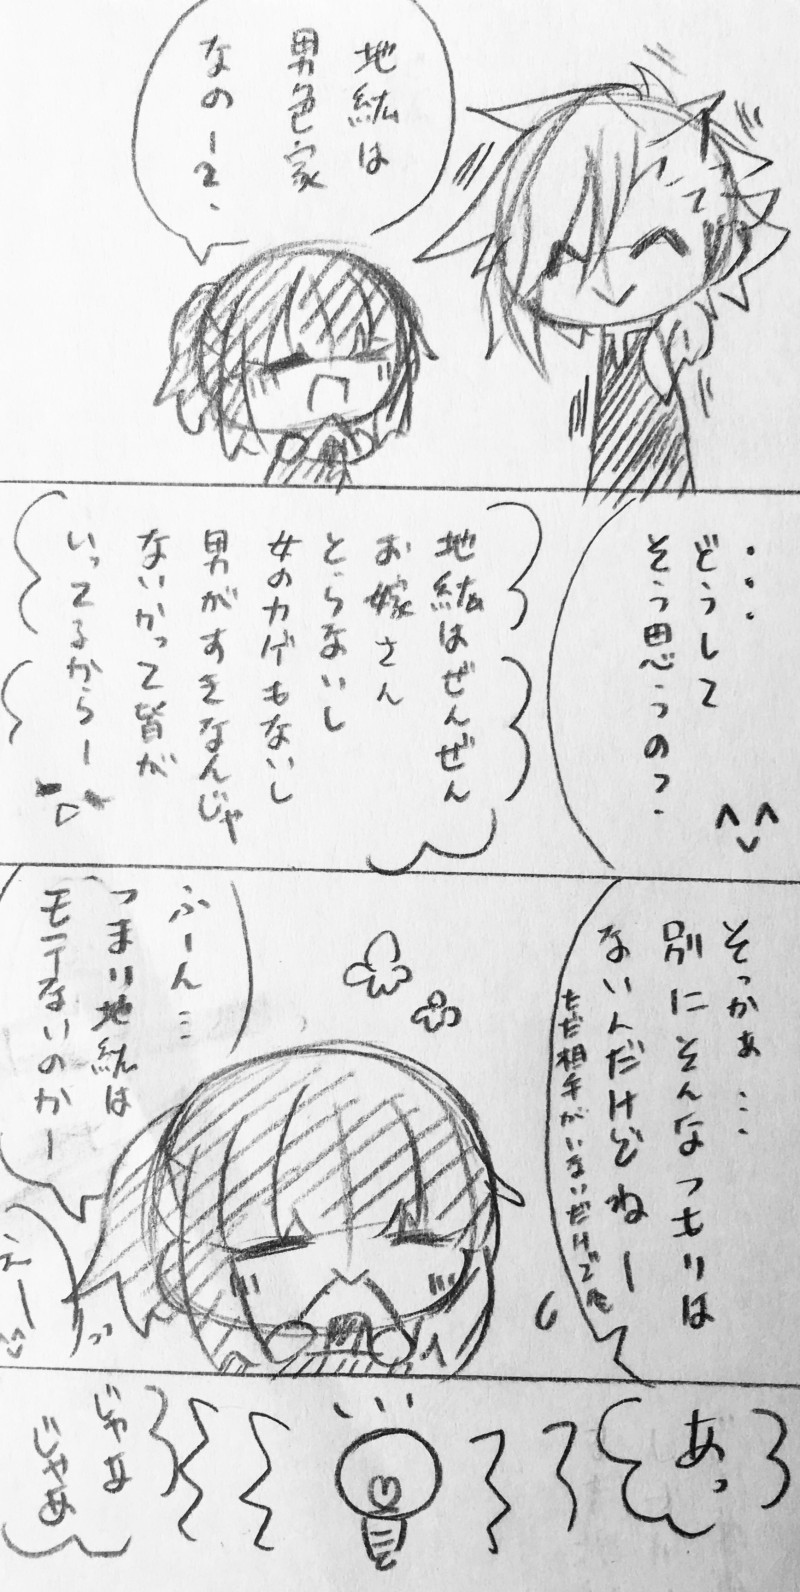 地紘は
男色家
なのー?
・・・
どうして
そう思うの?
地紘はぜんぜん
お嫁さん
とらないし
女のカゲもないし
男がすきなんじゃ
ないかって皆が
いってるからー
そっかぁ…
別にそんなつもりは
ないんだけどねー
ただ相手がいないだけで
ふーん…
つまり地紘は
モテないのかー
えー
あっ
じゃあ
じゃあ